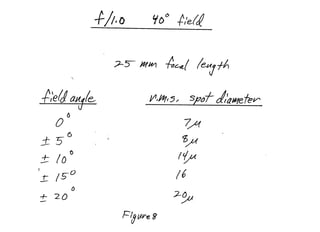 f/1.0 40° field
25 mm focal length
field angle r.m.s. spot diameter
0° 7μ
± 5° 8μ
± 10° 14μ
± 15° 16
± 20° 20μ
Figure 8